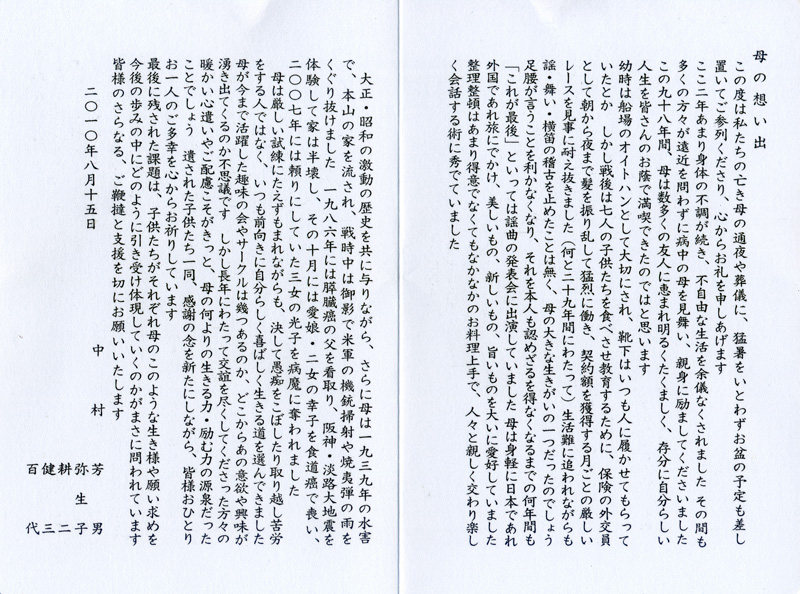 母の想い出
この度は私たちの亡き母の通夜や葬儀に、猛暑をいとわずお盆の予定も差し
置いてご参列くださり、心からお礼を申しあげます
ここ二年あまり身体の不調が続き、不自由な生活を余儀なくされました その間も
多くの方々が遠近を問わずに病中の母を見舞い、親身に励ましてくださいました
この九十八年間、母は数多くの友人に恵まれ明るくたくましく、存分に自分らしい
人生を皆さんのお蔭で満喫できたのではと思います
幼時は船場のオイトハンとして大切にされ、靴下はいつも人に履かせてもらって
いたとか しかし戦後は七人の子供たちを食べさせ教育するために、保険の外交員
として朝から夜まで髪を振り乱して猛烈に働き、契約額を獲得する月ごとの厳しい
レースを見事に耐え抜きました(何と二十九年間にわたって)生活難に追われながらも
謡・舞い・横笛の稽古を止めたことは無く、母の大きな生きがいの一つだったのでしょう
足腰が言うことを利かなくなり、それを本人も認めざるを得なくなるまでの何年間も
「これが最後」といっては謡曲の発表会に出演していました 母は身軽に日本であれ
外国であれ旅にでかけ、美しいもの、新しいもの、旨いものを大いに愛好していました
整理整頓はあまり得意でなくてもなかなかのお料理上手で、人々と親しく交わり楽し
く会話する術に秀でていました
大正・昭和の激動の歴史を共に与りながら、さらに母は一九三九年の水害
で、本山の家を流され、戦時中は御影で米軍の機銃掃射や焼夷弾の雨を
くぐり抜けました 一九八六年には膵臓癌の父を看取り、阪神・淡路大地震を
体験して家は半壊し、その十月には愛娘・二女の幸子を食道癌で喪い、
二〇〇七年には頼りにしていた三女の光子を病魔に奪われました
母は厳しい試練にたえずもまれながらも、決して愚痴をこぼしたり取り越し苦労
をする人ではなく、いつも前向きに自分らしく喜ばしく生きる道を選んできました
母が今まで活躍した趣味の会やサークルは幾つあるのか、どこからあの意欲や興味が
湧き出てくるのか不思議です しかし長年にわたって交誼を尽くしてくださった方々の
暖かい心遣いやご配慮こそがきっと、母の何よりの生きる力・励む力の源泉だった
ことでしょう 遺された子供たち一同、感謝の念を新たにしながら、皆様おひとり
お一人のご多幸を心からお祈りしています
最後に残された課題は、子供たちがそれぞれ母のこのような生き様や願い求めを
今後の歩みの中にどのように引き受け体現していくのかがまさに問われています
皆様のさらなる、ご鞭撻と支援を切にお願いいたします
二〇一〇年八月十五日
中村
芳男
弥生子
耕二
健三
百代